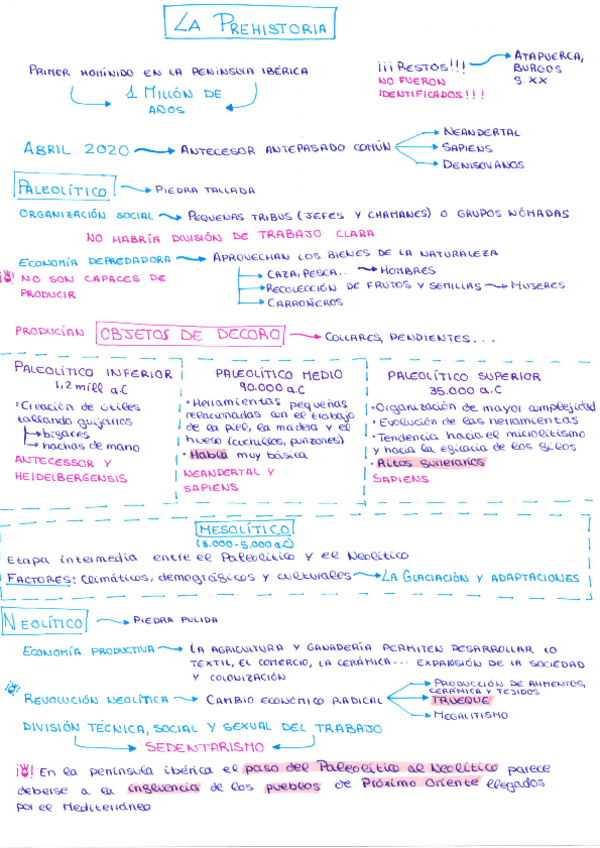 LA PREHISTORIA
PRIMER HOMÍNIDO EN LA PENÍNSULA IBÉRICA
1 MILLÓN DE
AÑOS
¡¡¡RESTOS!!!
NO FUERON
IDENTIFICADOS!!!
ATAPUERCA,
BURGOS
S. XX
ABRIL 2020
ANTECESOR ANTEPASADO COMÚN
NEANDERTAL
SAPIENS
DENISOVANOS
PALEOLÍTICO
PIEDRA TALLADA
ORGANIZACIÓN SOCIAL
PEQUEÑAS TRIBUS (JEFES Y CHAMANES) O GRUPOS NÓMADAS
NO HABRÍA DIVISIÓN DE TRABAJO CLARA
ECONOMÍA DEPREDADORA
APROVECHAN LOS BIENES DE LA NATURALEZA
¡! NO SON CAPACES DE
PRODUCIR
CAZA, PESCA...
HOMBRES
RECOLECCIÓN DE FRUTOS Y SEMILLAS
MUJERES
CARROÑEROS
PRODUCÍAN OBJETOS DE DECORO
COLLARES, PENDIENTES...
PALEOLÍTICO INFERIOR
1,2 mill a.C
·Creación de útiles
tallando guijarros
bifaces
hachas de mano
ANTECESSOR Y
HEIDELBERGENSIS
PALEOLÍTICO MEDIO
90.000 a.C
·Herramientas pequeñas
relacionadas con el trabajo
de la piel, la madera y el
hueso (cuchillos, punzones)
·Habla muy básica
NEANDERTAL Y
SAPIENS
PALEOLÍTICO SUPERIOR
35.000 a.C
·Organización de mayor complejidad
·Evolución de las herramientas
·Tendencia hacia el microlitismo
y hacia la eficacia de los filos
·Ritos funerarios
SAPIENS
MESOLÍTICO
(8.000-5.000 a.C)
Etapa intermedia entre el Paleolítico y el Neolítico
FACTORES: climáticos, demográficos y culturales
LA GLACIACIÓN Y ADAPTACIONES
NEOLÍTICO
PIEDRA PULIDA
ECONOMÍA PRODUCTIVA
LA AGRICULTURA Y GANADERÍA PERMITEN DESARROLLAR LO
TEXTIL, EL COMERCIO, LA CERÁMICA... EXPANSIÓN DE LA SOCIEDAD
Y COLONIZACIÓN
¡! REVOLUCIÓN NEOLÍTICA
CAMBIO ECONÓMICO RADICAL
PRODUCCIÓN DE ALIMENTOS,
CERÁMICA Y TEJIDOS
TRUEQUE
MEGALITISMO
DIVISIÓN TÉCNICA, SOCIAL Y SEXUAL DEL TRABAJO
SEDENTARISMO
¡! En la península ibérica el paso del Paleolítico al Neolítico parece
deberse a la influencia de los pueblos de Próximo Oriente llegados
por el Mediterráneo